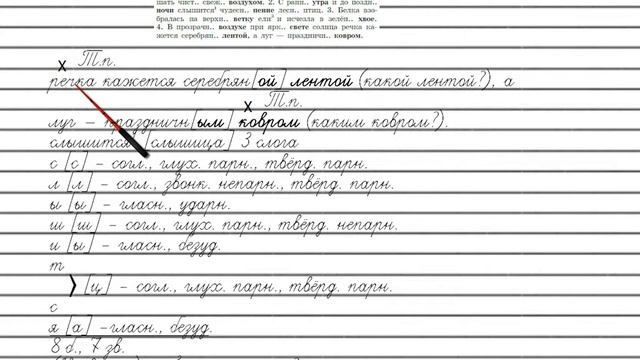 шать чист.. свеж.. воздухом. 2. С ранн.. утра и до поздн..
ночи слышится³ чудесн.. пение лесн.. птиц. 3. Белка взо-
бралась на верхн.. ветку ели² и исчезла в зелён.. хвое.
4. В прозрачн.. воздухе при ярк.. свете солнца речка ка-
жется серебрян.. лентой, а луг — праздничн.. ковром.
х Т.п.
речка кажется серебрян[ой] лентой (какой лентой?), а
х Т.п.
луг – праздничн[ым] ковром (каким ковром?).
слышится [слышица] 3 слога
с [с] – согл., глух. парн., твёрд. парн.
л [л] – согл., звонк. непарн., твёрд. парн.
ы [ы] – гласн., ударн.
ш [ш] – согл., глух. парн., твёрд. непарн.
и [ы] – гласн., безуд.
т
〉 [ц] – согл., глух. парн., твёрд. парн.
с
я [а] –гласн., безуд.
8 б., 7 зв.